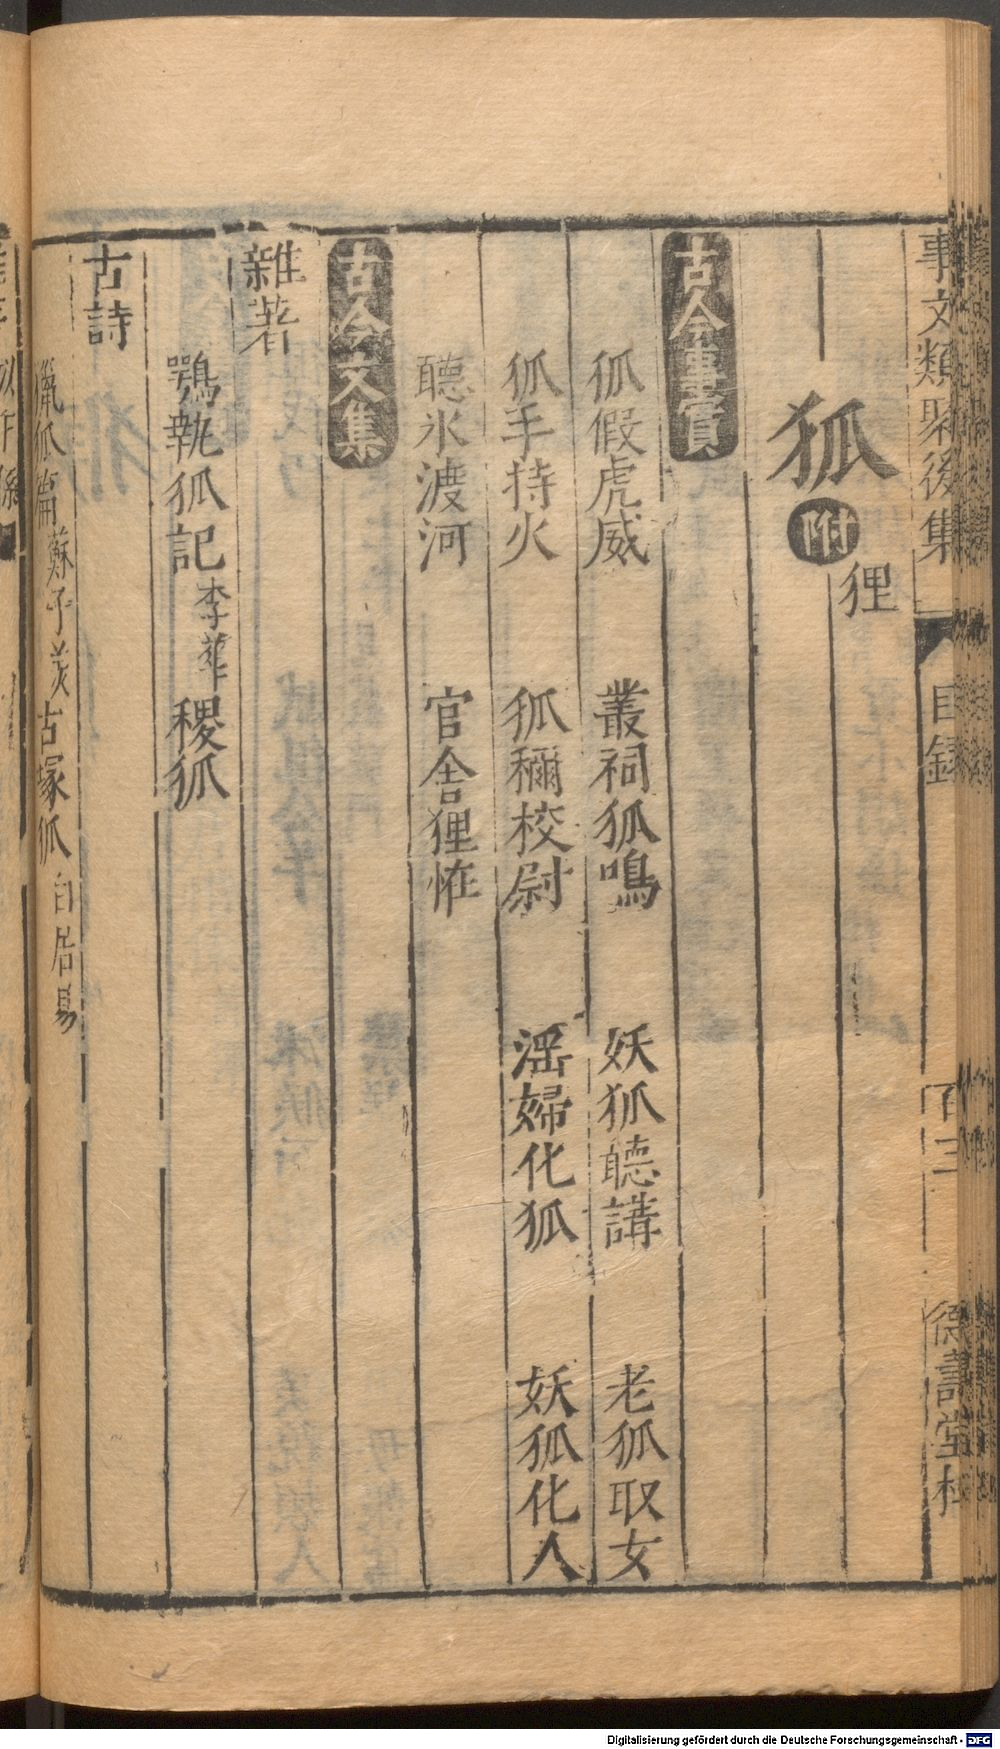 事文類聚後集 目錄 百三 德壽堂梓
狐 附 狸
古今事實
狐假虎威 叢祠狐鳴 妖狐聽講 老狐取女
狐手持火 狐稱校尉 淫婦化狐 妖狐化人
聽氷渡河 官舍狸怪
古今文集
雜著
鶚執狐記 李華 稷狐
古詩
獵狐篇 蘇子美 古塚狐 白居易
Digitalisierung gefördert durch die Deutsche Forschungsgemeinschaft - DFG